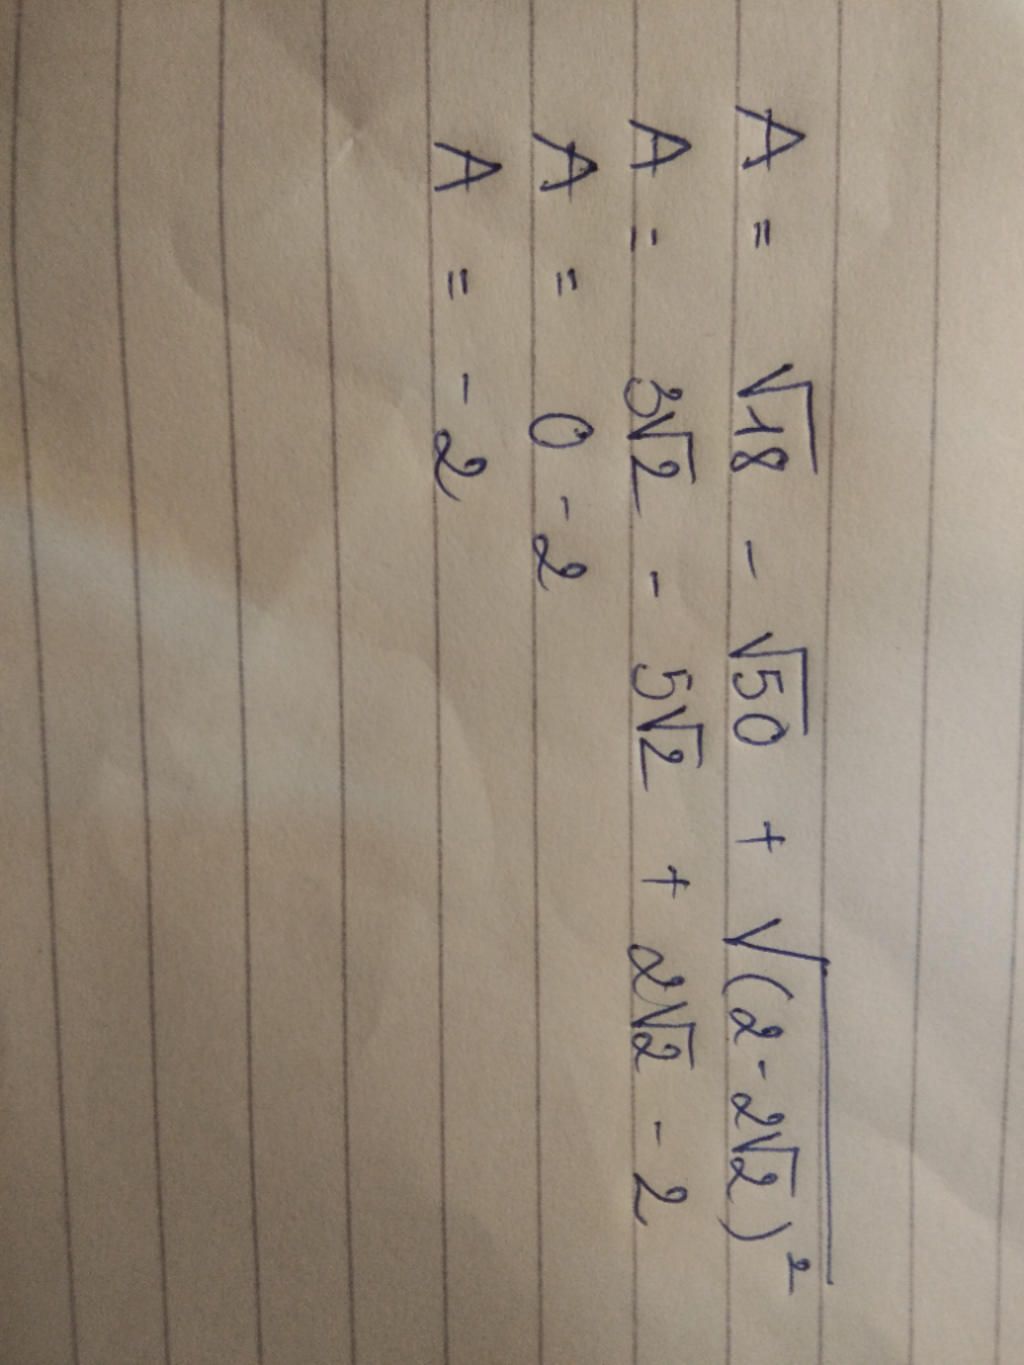 A = √18 - √50 + √(2-2√2)²
A = 3√2 - 5√2 + 2√2 - 2
A = 0 - 2
A = -2